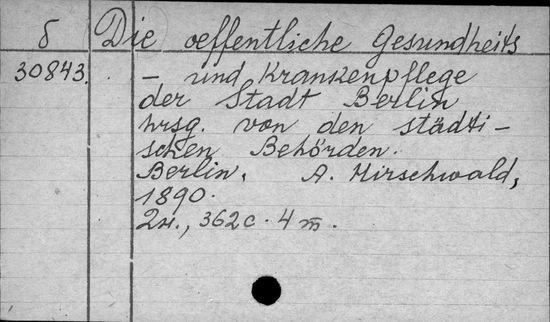 б Die oeffentliche Gesundheits
30843. - und Krankenpflege
der Stadt Berlin
hrsg. von den städti-
schen Behörden.
Berlin, A. Hirschwald,
1890.
362 c. 4